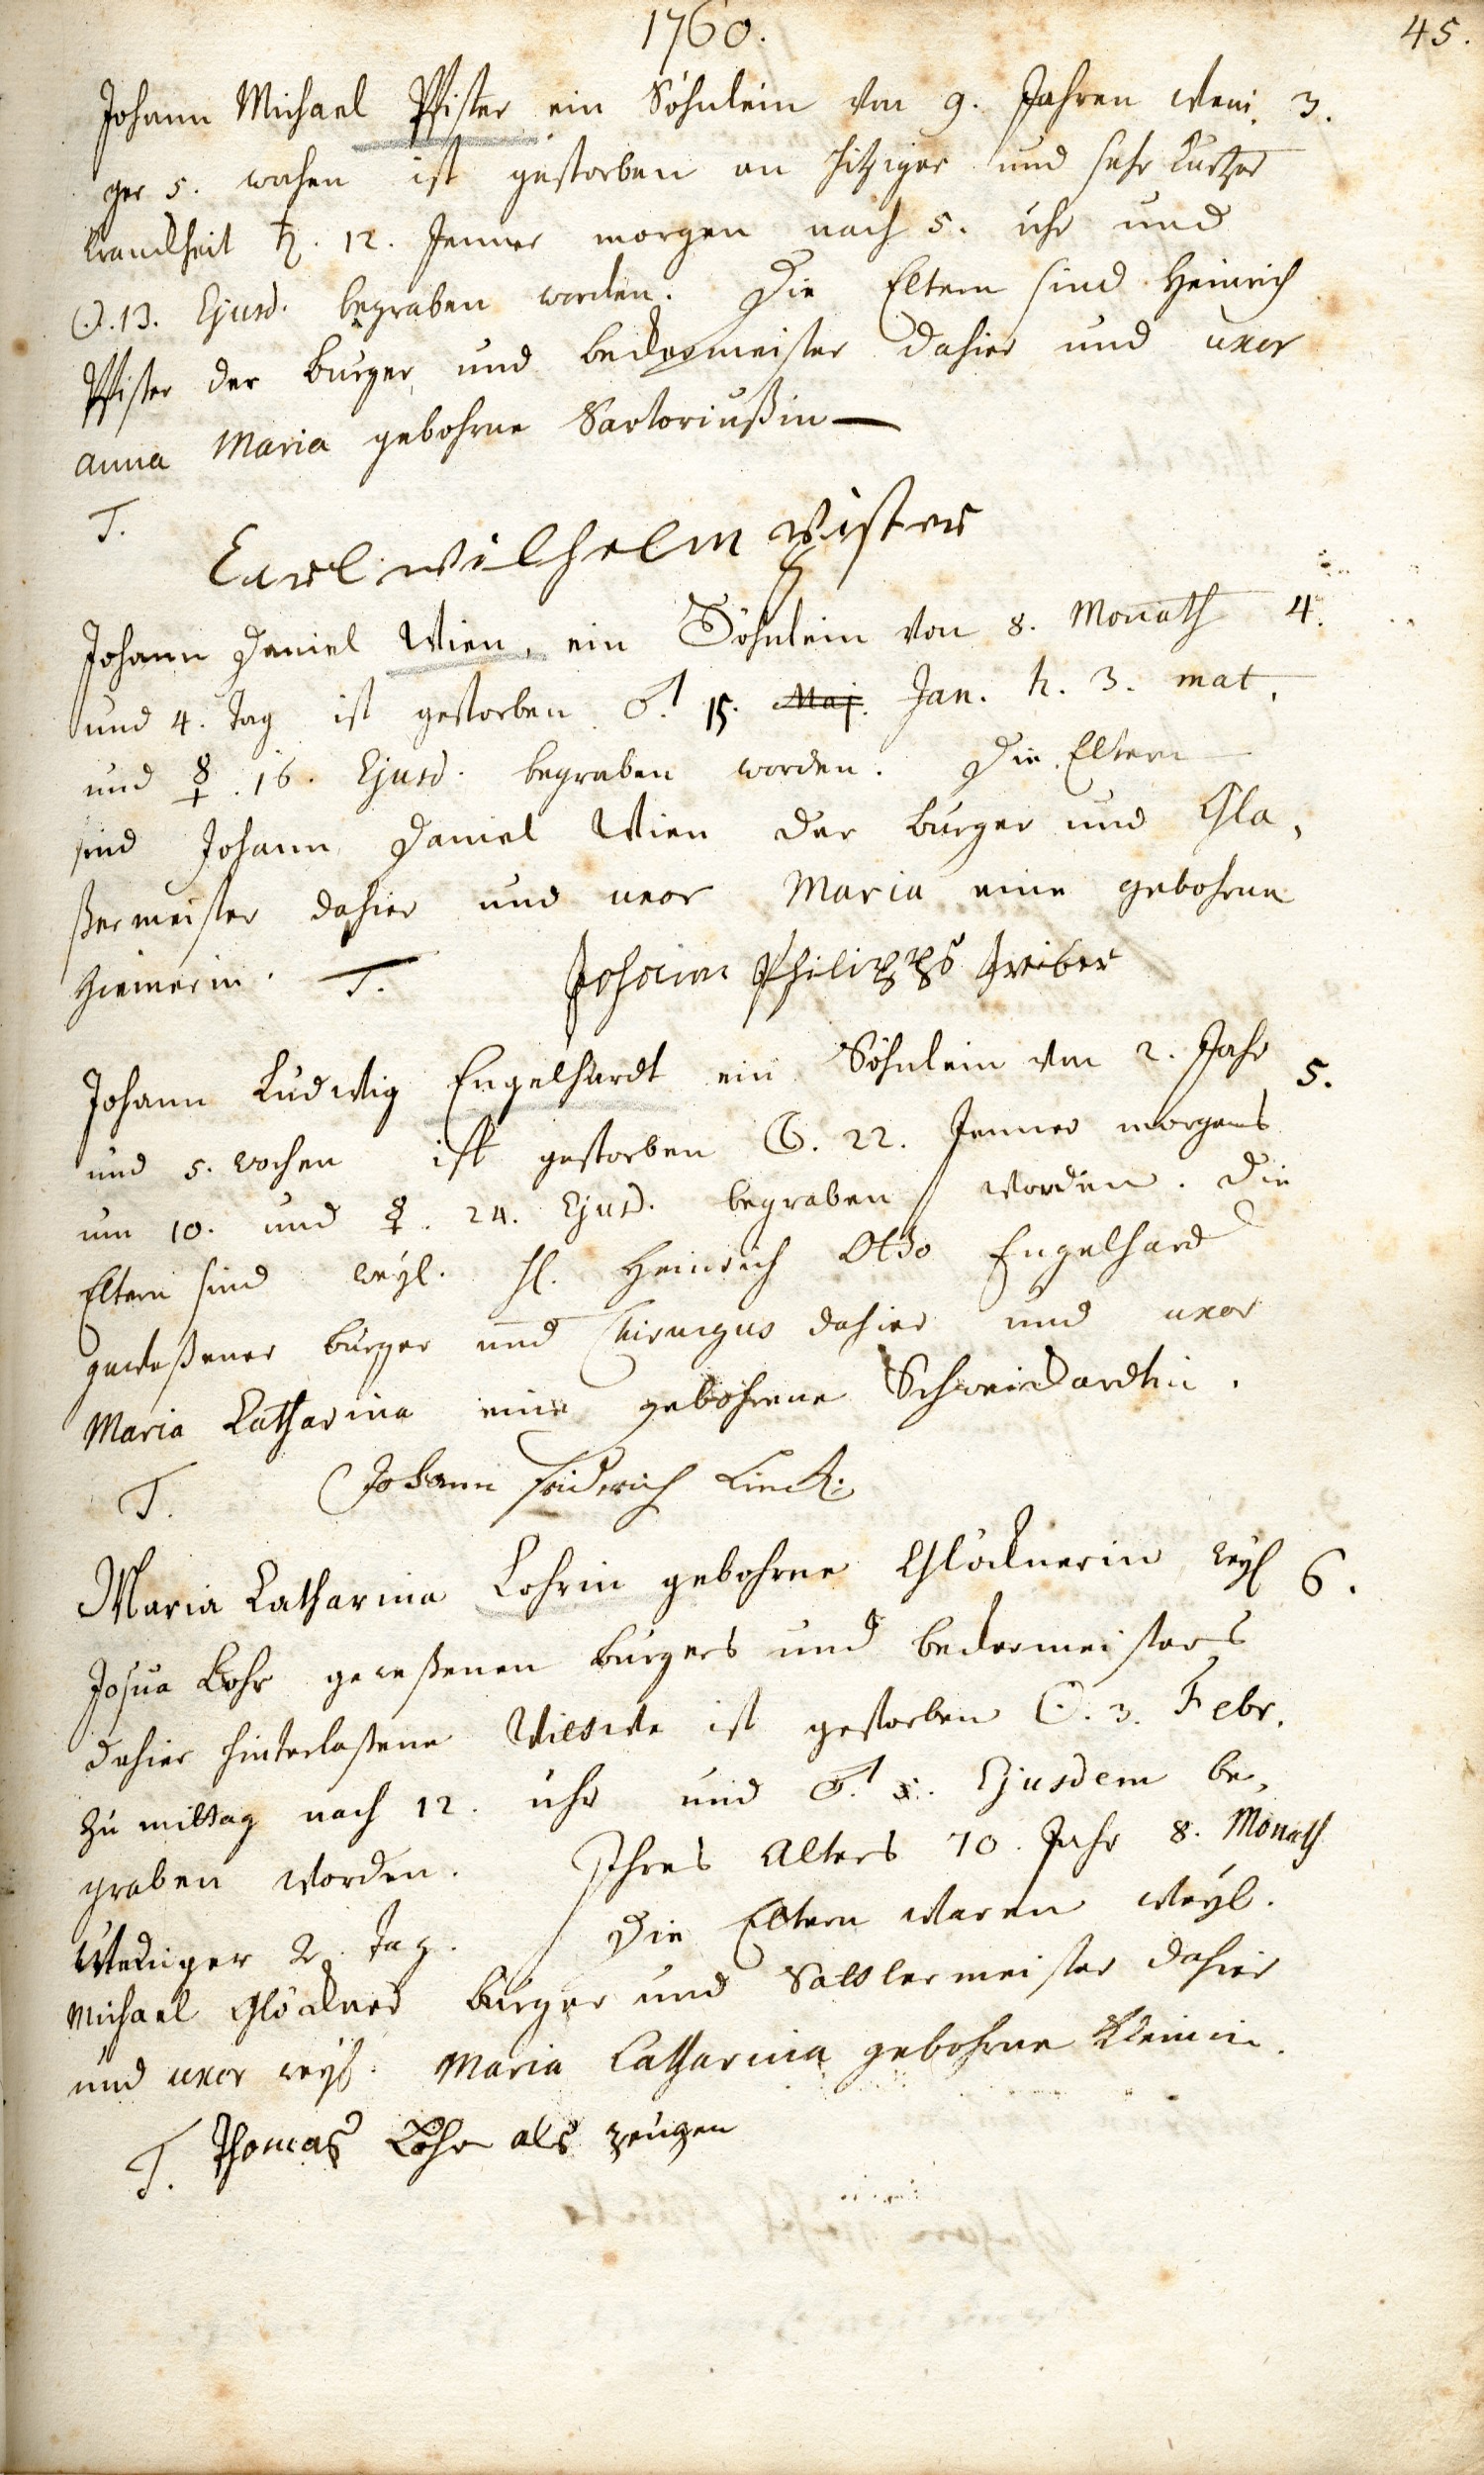 1760.
45.
Johann Michael Pfister ein Söhnlein von 9. Jahren weni, 3.
ger 5. wochen ist gestorben an hitziger und sehr kurtzer
Kranckheit ♄. 12. Jenner morgen nach 5. uhr und
☉. 13. Ejusd. begraben worden. Die Eltern sind Heinrich
Pfister der burger und beckermeister dahier und uxor
anna Maria gebohrne Sartoriußin
T.
Carl wilhelm
Johann Daniel Wien, ein Söhnlein von 8. Monath 4.
und 4. Tag ist gestorben ♂. 15. Maj. Jan. h. 3. mat.
und ☿. 16. Ejusd. begraben worden. Die Eltern
sind Johann Daniel Wien der burger und Gla,
ßermeister dahier und uxor Maria eine gebohrne
T. Johann Philipps Treiber
Johann Ludwig Engelhardt ein Söhnlein von 2. Jahr 5.
und 5. wochen ist gestorben 22. Jenner morgens
um 10. und 24. Ejusd. begraben worden. Die
Eltern sind weyl. H. Heinrich Otto Engelhard
geweßener burger und Chirurgus dahier und uxor
Maria Catharina eine gebohrene Schweickardtin.
T. Johann friderich Linck
Maria Catharina Lohrin gebohrne Glöcknerin weyl 6.
Josua Lohr geweßenen burgers und beckermeisters
dahier hinterlaßene Wittwe ist gestorben ☉. 3. Febr.
zu mittag nach 12. uhr und ♂. 5. Ejusdem be,
graben worden. Ihres Alters 70. Jahr 8. Monath
weniger 2. Tag. Die Eltern waren weyl.
Michael Glöckner burger und Sattlermeister dahier
und uxor weyl. Maria Catharina gebohrne Kleinin.
T. Thomas Lohr als zeugen